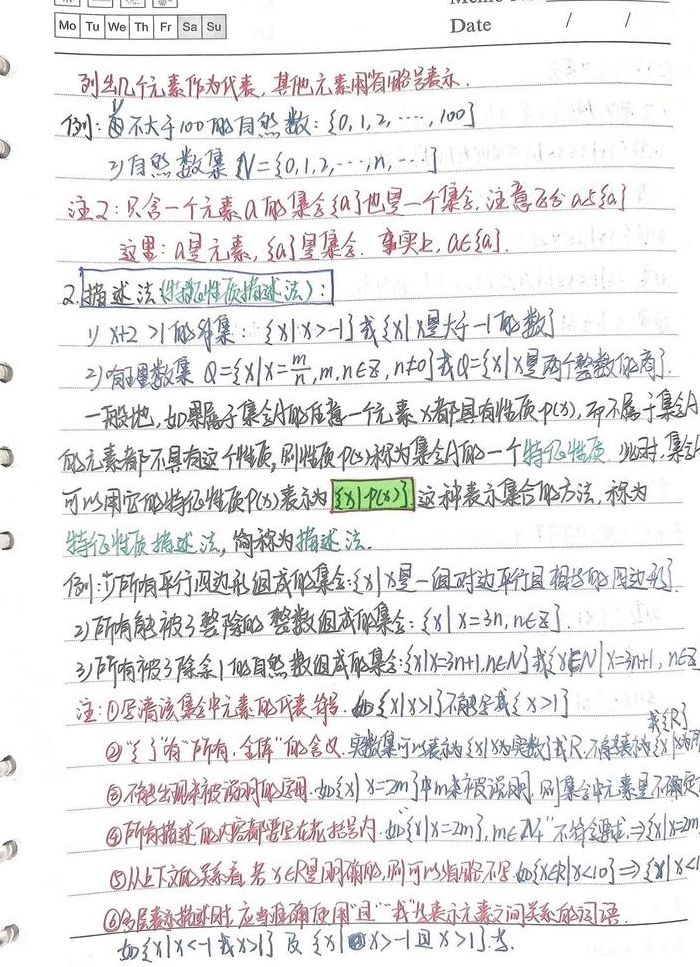 Mo Tu We Th Fr Sa Su
Date / /
列出几个元素作为代表,其他元素用省略号表示.
例: 1) 不大于100的自然数:{0,1,2,…,100}
2) 自然数集 N={0,1,2,…,n,…}
注2:只含一个元素a的集合{a}也是一个集合,注意区分a与{a}
这里:a是元素,{a}是集合. 事实上,a∈{a}.
2. 描述法(特征性质描述法):
1) x+2>1的解集:{x|x>-1}或{x|x是大于-1的数}
2) 有理数集 Q={x|x=m/n,m,n∈Z,n≠0}或Q={x|x是两个整数的商}.
一般地,如果属于集合A的任意一个元素x都具有性质p(x),而不属于集合A
的元素都不具有这个性质,则性质p(x)称为集合A的一个特征性质.此时,集合A
可以用它的特征性质p(x)表示为{x|p(x)}这种表示集合的方法,称为
特征性质描述法,简称为描述法.
例:1)所有平行四边形组成的集合:{x|x是一组对边平行且相等的四边形}.
2)所有能被3整除的整数组成的集合:{x|x=3n,n∈Z}.
3)所有被3除余1的自然数组成的集合:{x|x=3n+1,n∈N}或{x∈N|x=3n+1,n∈Z
注:①写清该集合中元素的代表符号.如{x|x>1}不能写成{x>1}
或{R}
②"{ }"有"所有,全体"的含义.实数集可以表示为{x|x为实数}或R,不得表示为{x|x为
③不能出现未被说明的字母.如{x|x=2m}中m未被说明,则集合中元素是不确定
④所有描述的内容都要写在花括号内.如"{x|x=2m},m∈N+"不符合要求⇒{x|x=2m
⑤从上下文的关系看,若x∈R是明确的,则可以省略不写.如{x∈R|x<10}⇒{x|x<1
⑥多层表示描述时,应当准确使用"且""或"等表示元素之间关系的词语.
如{x|x<-1或x>1}及{x|x>-1且x>1}等.